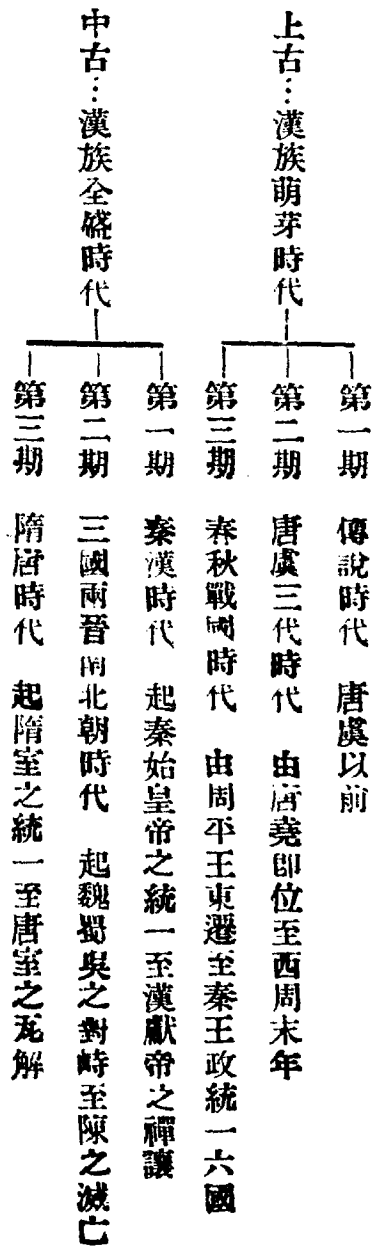 上古…漢族萌芽時代
第一期　傳說時代　唐虞以前
第二期　唐虞三代時代　由唐堯卽位至西周末年
第三期　春秋戰國時代　由周平王東遷至秦王政統一六國
中古…漢族全盛時代
第一期　秦漢時代　起秦始皇帝之統一至漢獻帝之禪讓
第二期　三國兩晉南北朝時代　起魏蜀吳之對峙至陳之滅亡
第三期　隋唐時代　起隋室之統一至唐室之瓦解